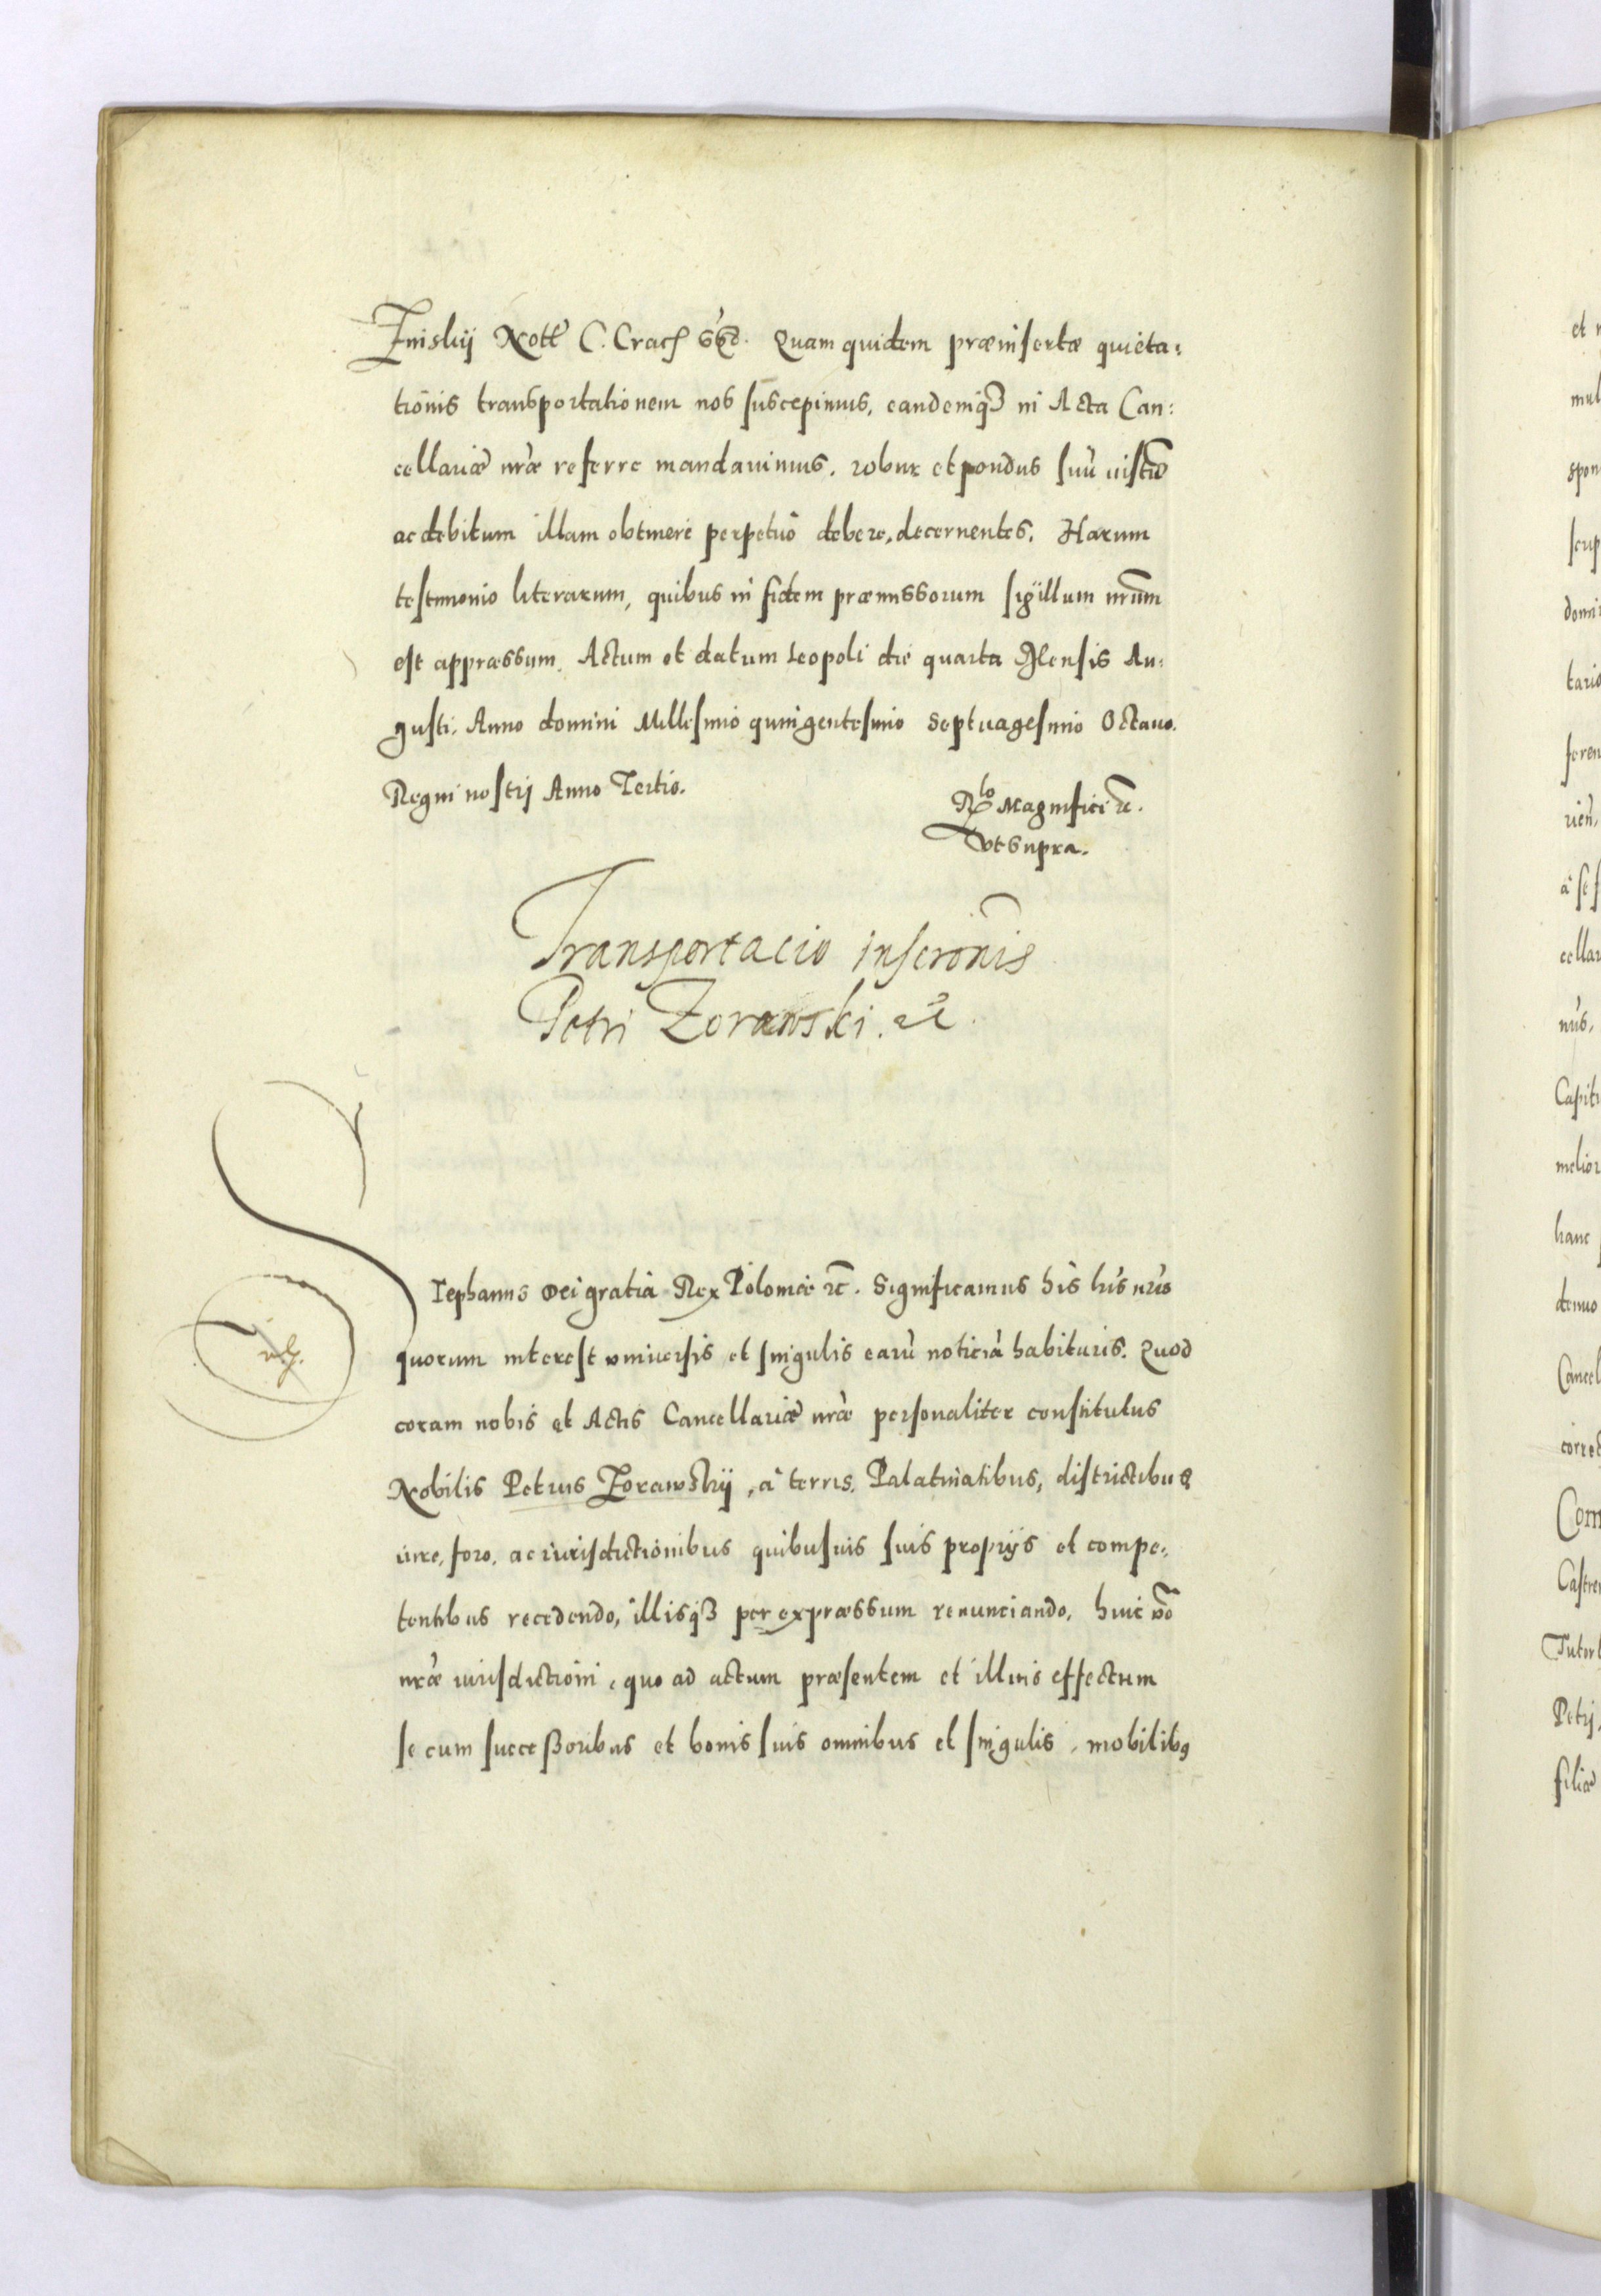 Zniskij Nott C. Crac͂ sst̃. Quam quidem præinsertæ quieta:
tionis transportationem nos suscepimus, eandemq3 in Acta Can:
cellariæ nr̃æ referre mandauimus. robur et pondus suũ iustũ
ac debitum illam obtinere perpetuò debere, decernentes. Harum
testimonio literarum, quibus in fidem præmissorum sigillum nrũm
est appræssum. Actum et datum Leopoli die quarta Mensis Au:
gusti. Anno domini Millesimo quingentesimo Septuagesimo Octauo.
Regni nostrj Anno Tertio.
Rlo Magnifici etc̃.
vt supra.
Transportacio inscr̃onis
Petri Zorawski. etc̃
Stephanus Dei gratia Rex Poloniæ etc̃. Significamus his lr̃is nr̃is
quorum interest vniuersis et singulis earũ noticiã habituris. Quod
coram nobis et Actis Cancellariæ nr̃æ personaliter constitutus
Nobilis Petrus Zorawskij, à terris, Palatinatibus, districtibus
iure, foro, ac iurisdictionibus quibusuis suis proprijs et compe:
tentibus recedendo, illisq3 per expræssum renunciando, huic vo͂
nr̃æ iurisdictioni, quo ad actum præsentem et illius effectum
se cum successoribus et bonis suis omnibus et singulis, mobilibꝰ
et
mul
spon
scrip
domi
tario
feren
rien,
à se
cellar
nus,
Capit
melior
hanc
denuo
Cancel
correc
Com
Castre
Tutor
Petrj,
filiæ